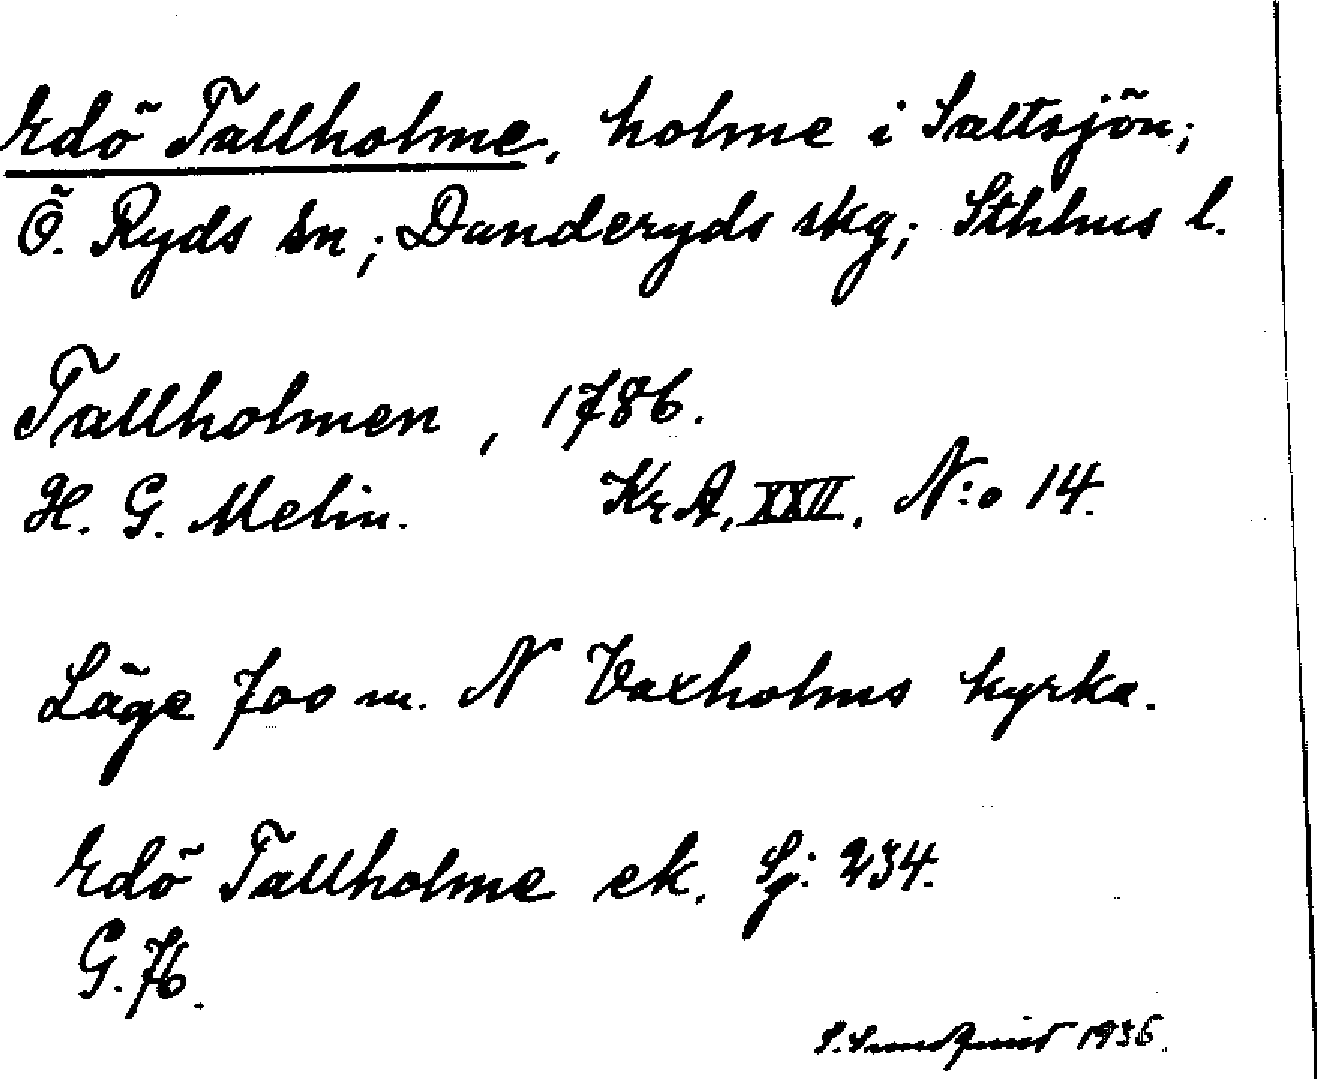 Edö Tallholme, holme i Saltsjön;
Ö. Ryds sn; Danderyds skg; Sthlms l.
Tallholmen, 1786.
H. G. Melin. Kr.A. XXII. N:o 14.
Läge 700 m. N Vaxholms kyrka.
Edö Tallholme ek. Sj: 234.
G. 76.
S. Sundquist 1936.